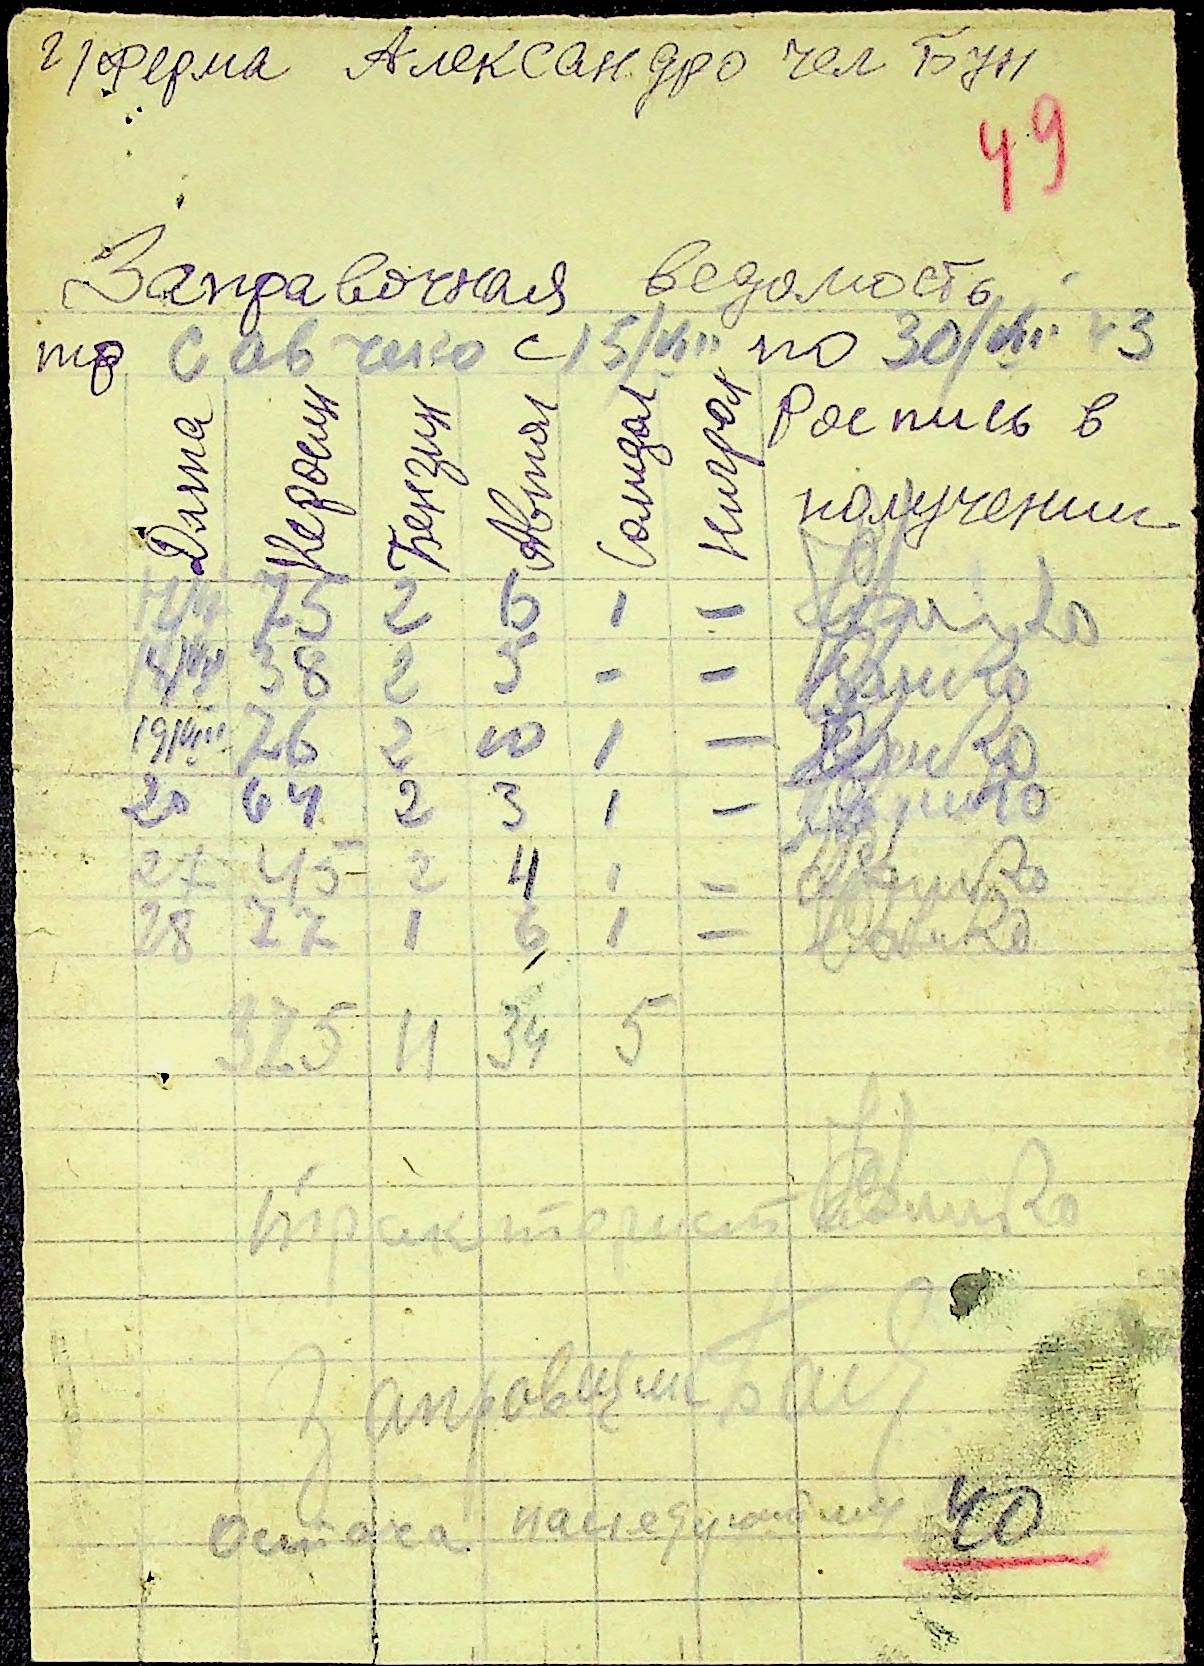 2) ферма Александро чел Бун
49
Заправочная ведомость
тр Савченко с 15/VIII по 30/VIII 43
Дата Керосин Бензин Автол Солидол Нигрол Роспись в
получении
75 2 6 1 –
18/VIII 38 2 5 – –
19/VIII 26 2 10 1 –
20 64 2 3 1 –
27 45 2 4 1 –
28 77 1 6 1 –
325 11 34 5
Тракторист
Заправщик
40